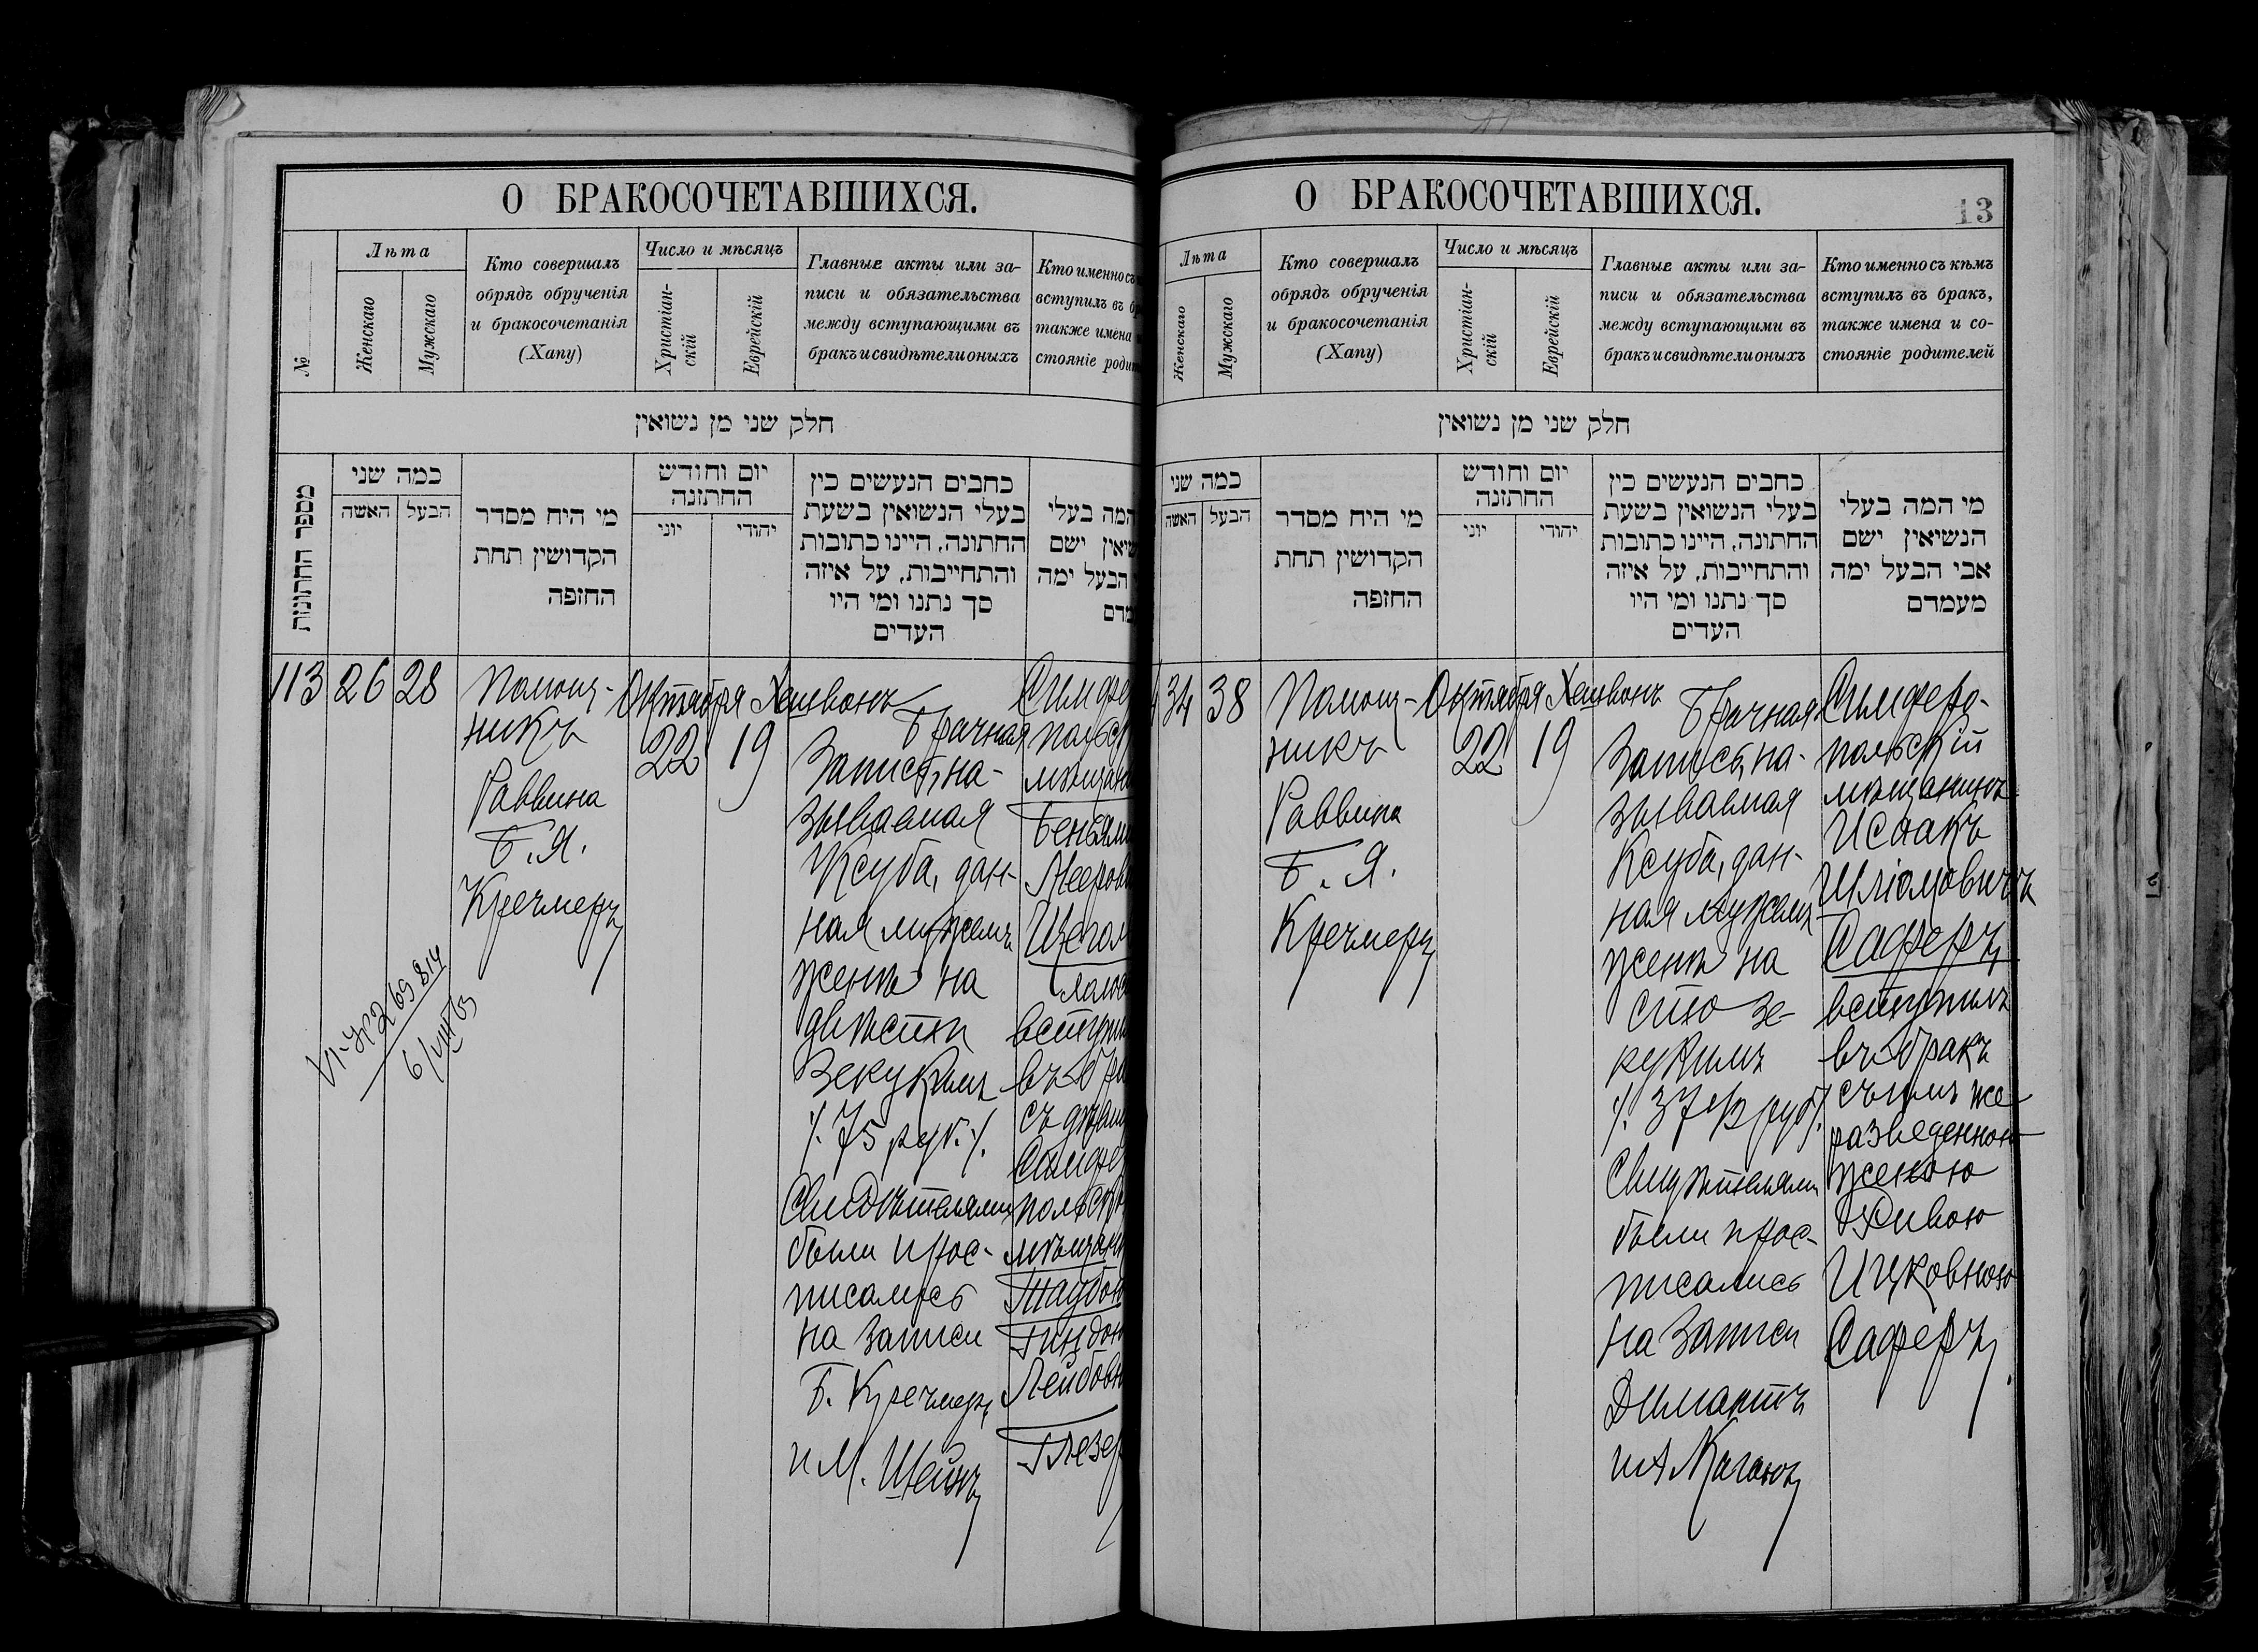 О БРАКОСОЧЕТАВШИХСЯ.
№
Лѣта
Женскаго
Мужскаго
Кто совершалъ
обрядъ обрученія
и бракосочетанія
(Хапу)
Число и мѣсяцъ
Христіан-
скій
Еврейскій
Главные акты или за-
писи и обязательства
между вступающими въ
бракъ и свидѣтели оныхъ
Кто именно съ
вступилъ въ б
также имена
стояніе роди
חלק שני מן נשואין
מספר החתונות
כמה שני
האשה
הבעל
מי היח מסדר
הקדושין תחת
החזפה
יום וחודש
החתונה
יוני
יהודי
כחבים הנעשים כין
בעלי הנשואין בשעת
החתונה, היינו כתובות
והתחייבות, על איזה
סך נתנו ומי היו
העדים
המה בעלי
שיאין ישם
הבעל ימה
מדם
113
26
28
Помощ-
никъ
Раввина
Б. Я.
Кречмеръ
Октября
22
Хешвонъ
19
Брачная
запись, на-
зываемая
Ксуба, дан-
ная мужемъ
женѣ на
двѣсти
зекукимъ
/. 75 руб. /.
Свидѣтелями
были и рос-
писались
на записи
Б. Кречмеръ
и М. Штейнъ
Симфе
польс
мѣщан
Беньями
Меерови
Щегол
вступи
въ бра
съ дѣвиц
Симфе
польско
мѣщан
Таубою
Гиндою
Лейбовн
Глезер
269814
6/VIII 65
О БРАКОСОЧЕТАВШИХСЯ.
13
Лѣта
Женскаго
Мужскаго
Кто совершалъ
обрядъ обрученія
и бракосочетанія
(Хапу)
Число и мѣсяцъ
Христіан-
скій
Еврейскій
Главные акты или за-
писи и обязательства
между вступающими въ
бракъ и свидѣтели оныхъ
Кто именно съ кѣмъ
вступилъ въ бракъ,
также имена и со-
стояніе родителей
חלק שני מן נשואין
כמה שני
האשה
הבעל
מי היח מסדר
הקדושין תחת
החזפה
יום וחודש
החתונה
יוני
יהודי
כחבים הנעשים כין
בעלי הנשואין בשעת
החתונה, היינו כתובות
והתחייבות, על איזה
סך נתנו ומי היו
העדים
מי המה בעלי
הנשיאין ישם
אבי הבעל ימה
מעמדם
34
38
Помощ-
никъ
Раввина
Б. Я.
Кречмеръ
Октября
22
Хешвонъ
19
Брачная
запись, на-
зываемая
Ксуба, дан-
ная мужемъ
женѣ на
сто зе-
кукимъ
/. 37 1/2 руб /.
Свидѣтелями
были и рос-
писались
на записи
Димантъ
и А Каганъ
Симферо-
польскій
мѣщанинъ
Исаакъ
Шліомовичъ
Саферъ
вступилъ
въ бракъ
съ имъ же
разведенною
женою
Ривою
Ицковною
Саферъ.